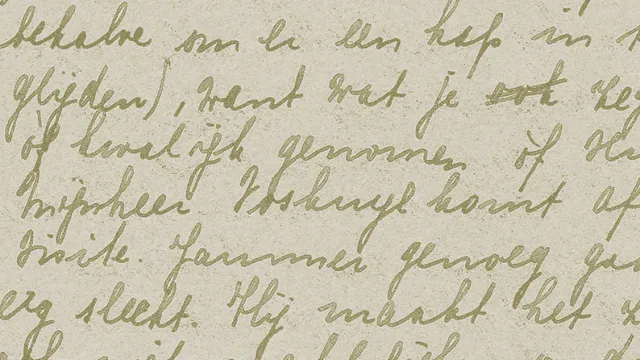 behalve om er een hap in
glijden), want wat je ook
òf kwalijk genomen òf
Mijnheer Voskuyl komt af
visite. Jammer genoeg
erg slecht. Hij maakt het